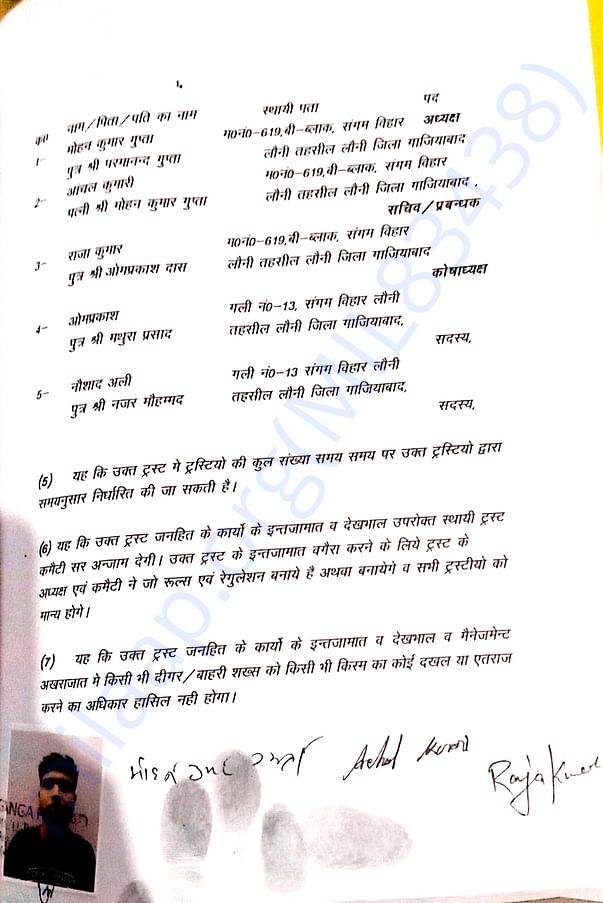 1.
क0 नाम/पिता/पति का नाम स्थायी पता पद
1- मोहन कुमार गुप्ता म0नं0-619,बी-ब्लाक, संगम विहार अध्यक्ष
पुत्र श्री परमानन्द गुप्ता लौनी तहसील लौनी जिला गाजियाबाद
2- आंचल कुमारी म0नं0-619,बी-ब्लाक, संगम विहार
पत्नी श्री मोहन कुमार गुप्ता लौनी तहसील लौनी जिला गाजियाबाद ,
सचिव/प्रबन्धक
3- राजा कुमार म0नं0-619,बी-ब्लाक, संगम विहार
पुत्र श्री ओमप्रकाश दास लौनी तहसील लौनी जिला गाजियाबाद
कोषाध्यक्ष
4- ओमप्रकाश गली नं0-13, संगम विहार लौनी
पुत्र श्री मथुरा प्रसाद तहसील लौनी जिला गाजियाबाद,
सदस्य,
5- नौशाद अली गली नं0-13 संगम विहार लौनी
पुत्र श्री नजर मौहम्मद तहसील लौनी जिला गाजियाबाद,
सदस्य,
(5) यह कि उक्त ट्रस्ट मे ट्रस्टियो की कुल संख्या समय समय पर उक्त ट्रस्टियो द्वारा
समयनुसार निर्धारित की जा सकती है।
(6) यह कि उक्त ट्रस्ट जनहित के कार्यो के इन्तजामात व देखभाल उपरोक्त स्थायी ट्रस्ट
कमैटी सर अन्जाम देगी। उक्त ट्रस्ट के इन्तजामात वगैरा करने के लिये ट्रस्ट के
अध्यक्ष एवं कमैटी ने जो रूल्स एवं रेगुलेशन बनाये है अथवा बनायेगे व सभी ट्रस्टीयो को
मान्य होगे।
(7) यह कि उक्त ट्रस्ट जनहित के कार्यो के इन्तजामात व देखभाल व मैनेजमेन्ट
अखराजात मे किसी भी दीगर/बाहरी शख्स को किसी भी किस्म का कोई दखल या एतराज
करने का अधिकार हासिल नही होगा।
Achal Kumari
Raja Kumar
milaap.org(MIL83438)